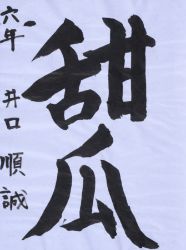 甜瓜
六年 井口順誠